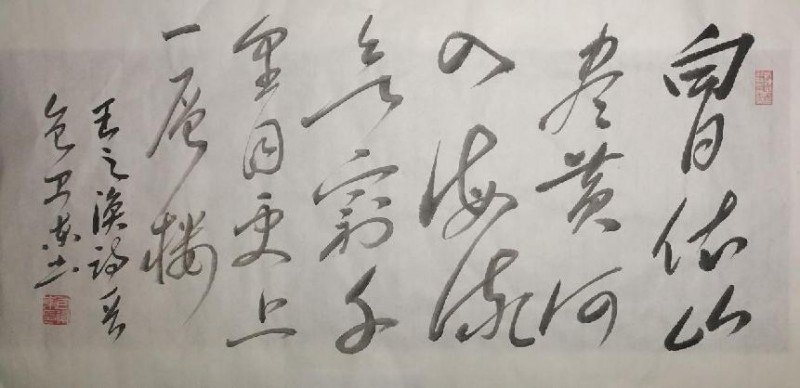 白日依山
尽黄河
入海流
欲窮千
里目更上
一層楼
王之涣诗
卫东书